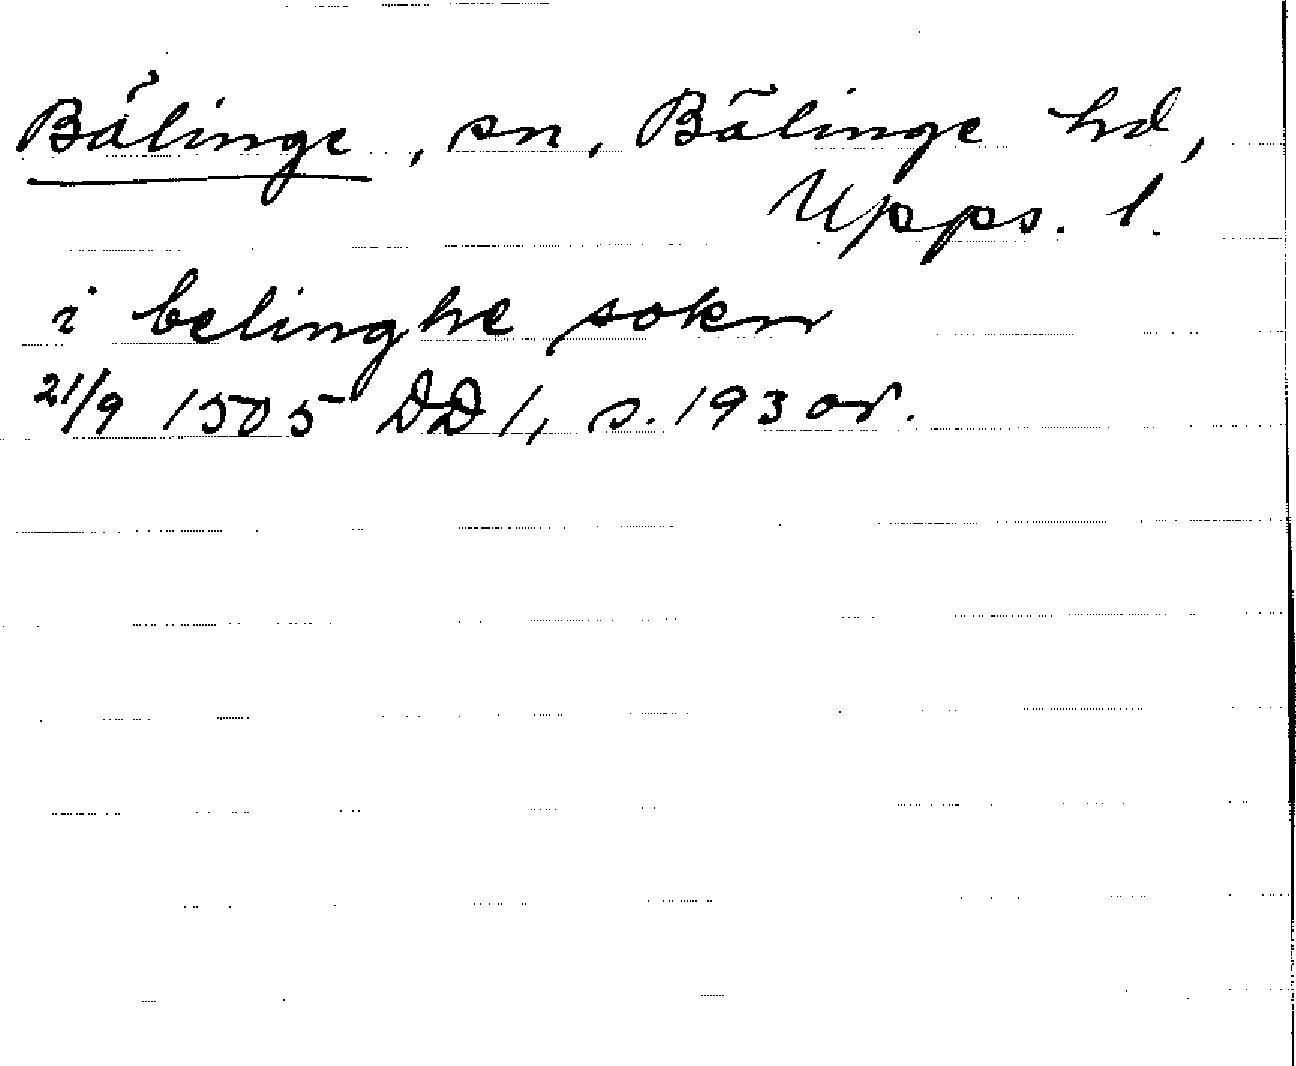 Bälinge, sn, Bälinge hd,
Upps. l.
i belinghe sokn
21/9 1505 DD 1, s. 193 or.